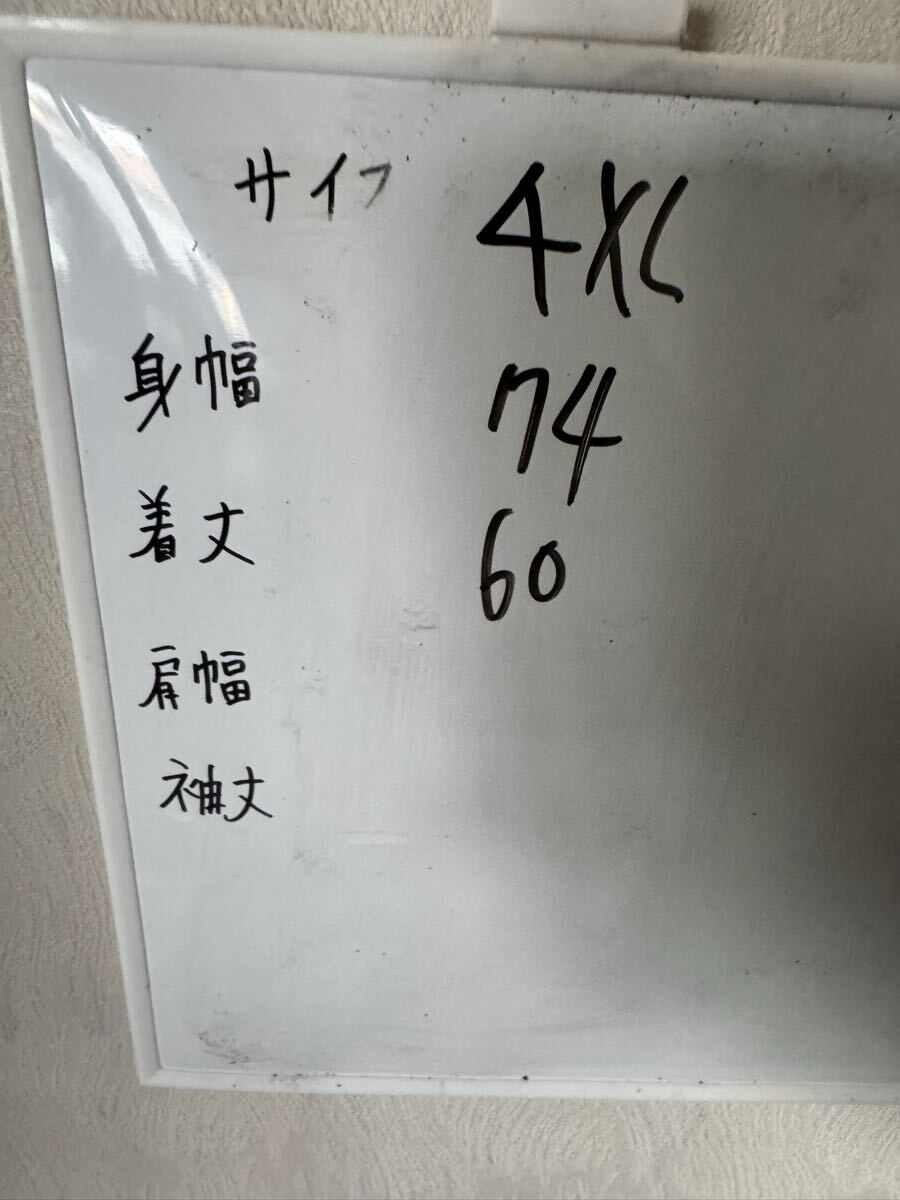 サイフ 4XL
身幅 74
着丈 60
肩幅
袖丈